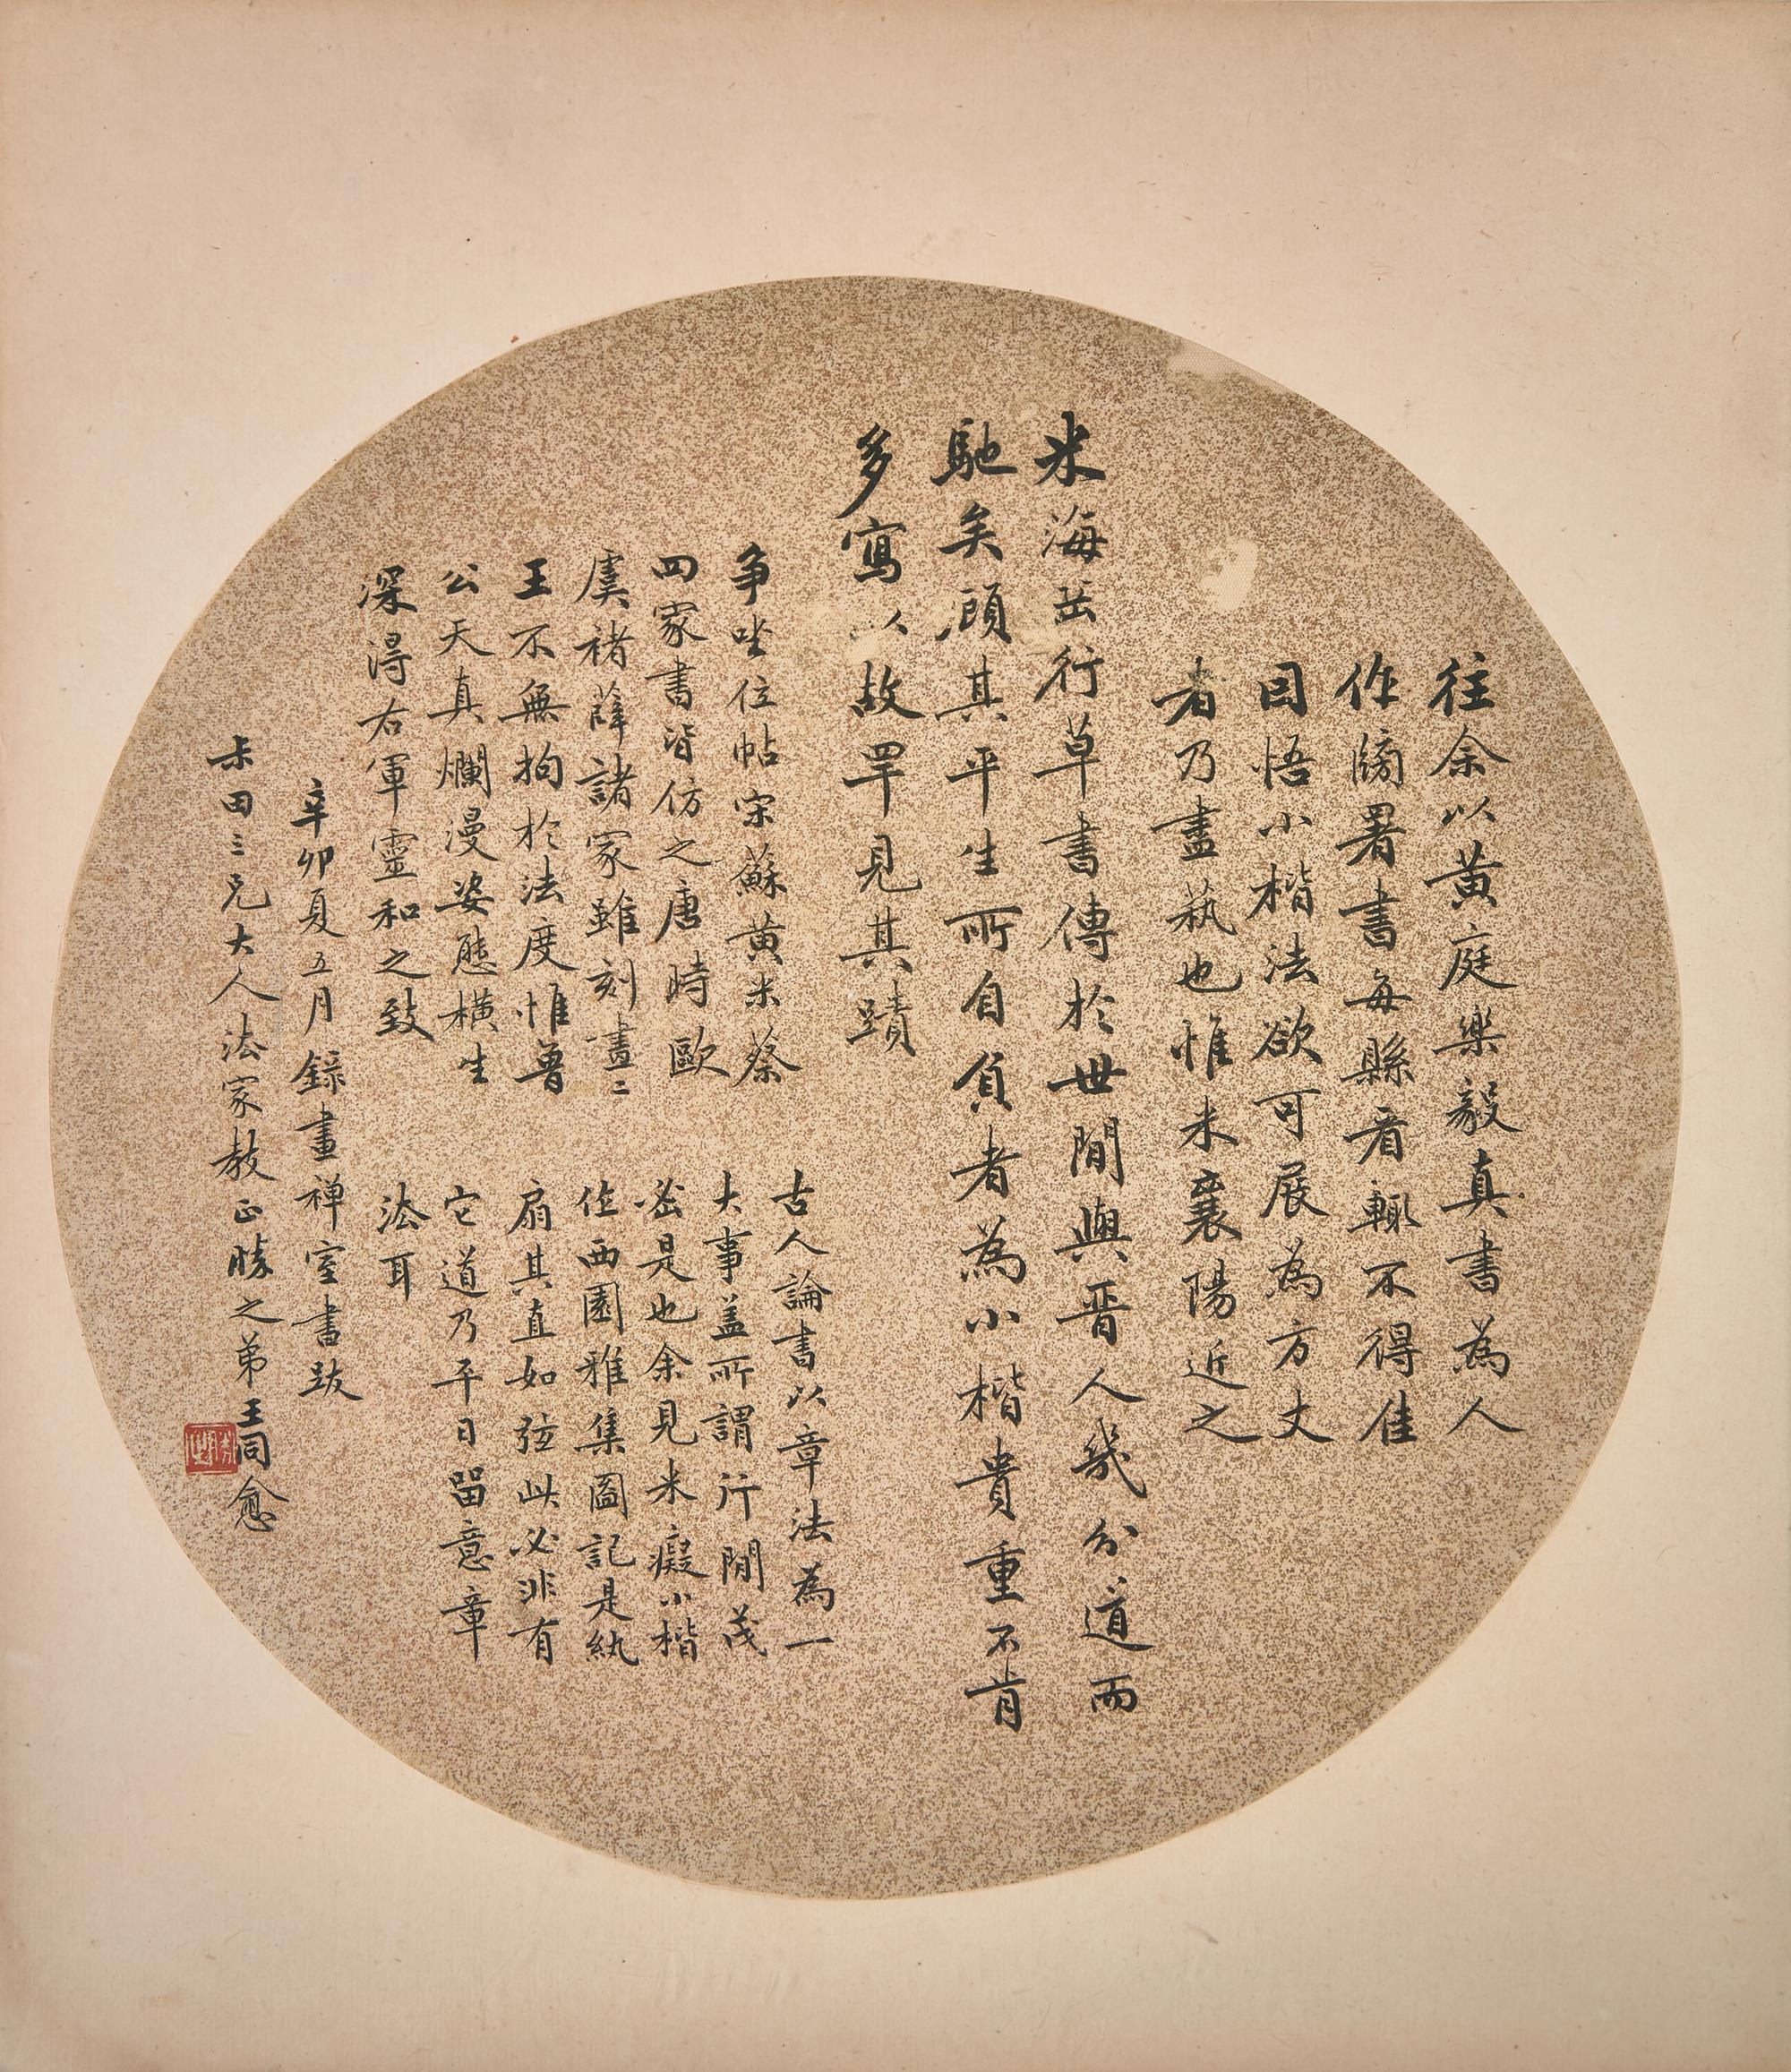 往余以黄庭樂毅真書為人
作牓署書每縣看輙不得佳
因悟小楷法欲可展為方丈
者乃盡埶也惟米襄陽近之
米海岳行草書傳於世間與晋人幾分道而
馳矣顧其平生所自負者為小楷貴重不肯
多寫以故罕見其蹟
争坐位帖宋蘇黄米蔡
四家書皆仿之唐時歐
虞褚薛諸家雖刻畫二
王不無拘於法度惟魯
公天真爛漫姿態橫生
深得右軍靈和之致
古人論書以章法為一
大事盖所謂行間茂
密是也余見米癡小楷
作西園雅集圖記是紈
扇其直如弦此必非有
它道乃平日留意章
法耳
辛卯夏五月錄畫禅室書跋
尗田三兄大人法家教正勝之弟王同愈